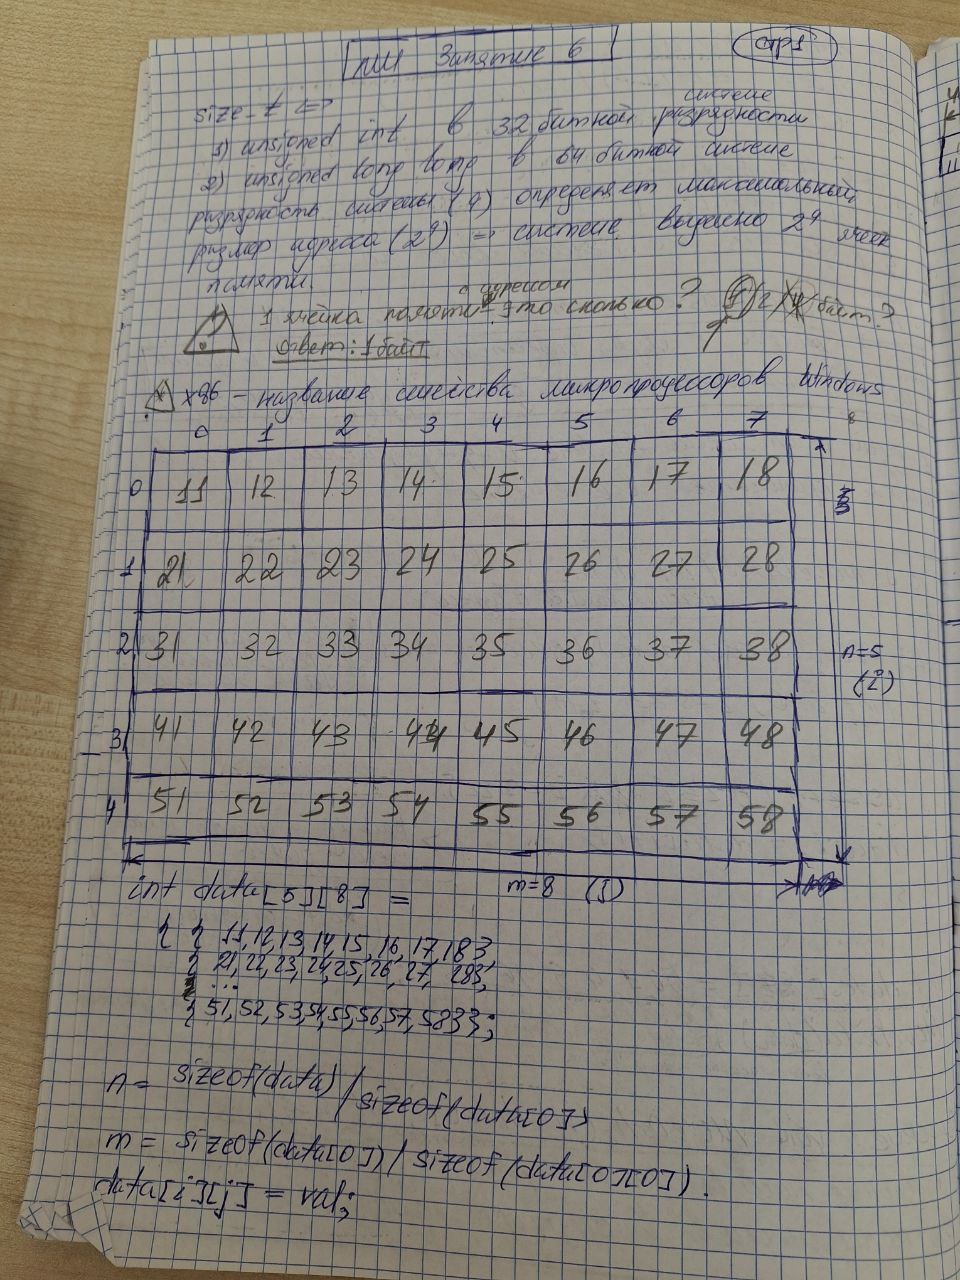 Занятие 6
стр 1
size_t <=>
1) unsigned int в 32 битной разрядности системе
2) unsigned long long в 64 битной системе
разрядность системы (q) определяет максимальный
размер адреса (2^q) → системе выделено 2^q ячеек
памяти.
1 ячейка памяти с адресом - это сколько? 1/2/4/байт?
ответ: 1 байт
x86 - название семейства микропроцессоров Windows
0 1 2 3 4 5 6 7 8
0 11 12 13 14 15 16 17 18
1 21 22 23 24 25 26 27 28
2 31 32 33 34 35 36 37 38
n=5
(i)
3 41 42 43 44 45 46 47 48
4 51 52 53 54 55 56 57 58
m=8 (j)
int data[5][8] =
{ { 11,12,13,14,15,16,17,18},
{ 21,22,23,24,25,26,27,28},
...
{ 51,52,53,54,55,56,57,58}};
n = sizeof(data) / sizeof(data[0])
m = sizeof(data[0]) / sizeof(data[0][0]).
data[i][j] = val;